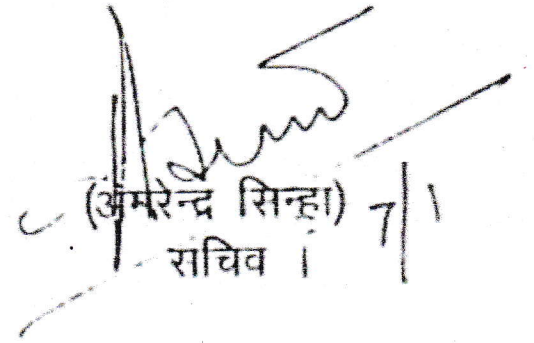 (अमरेन्द्र सिन्हा) 7/1
सचिव ।